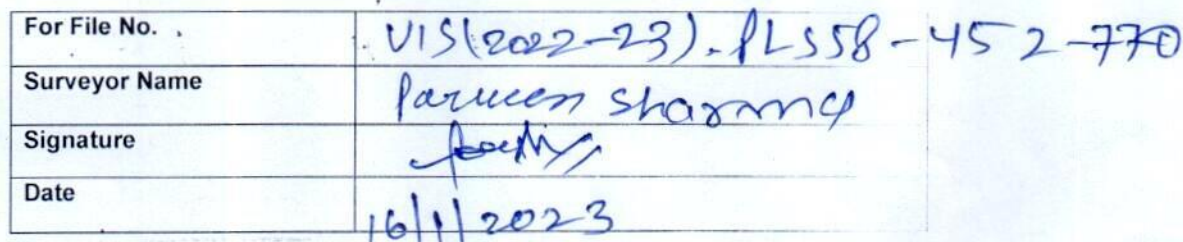 For File No. . VIS(2022-23).PLS58-452-770
Surveyor Name Parveen Sharma
Signature
Date 16/1/2023